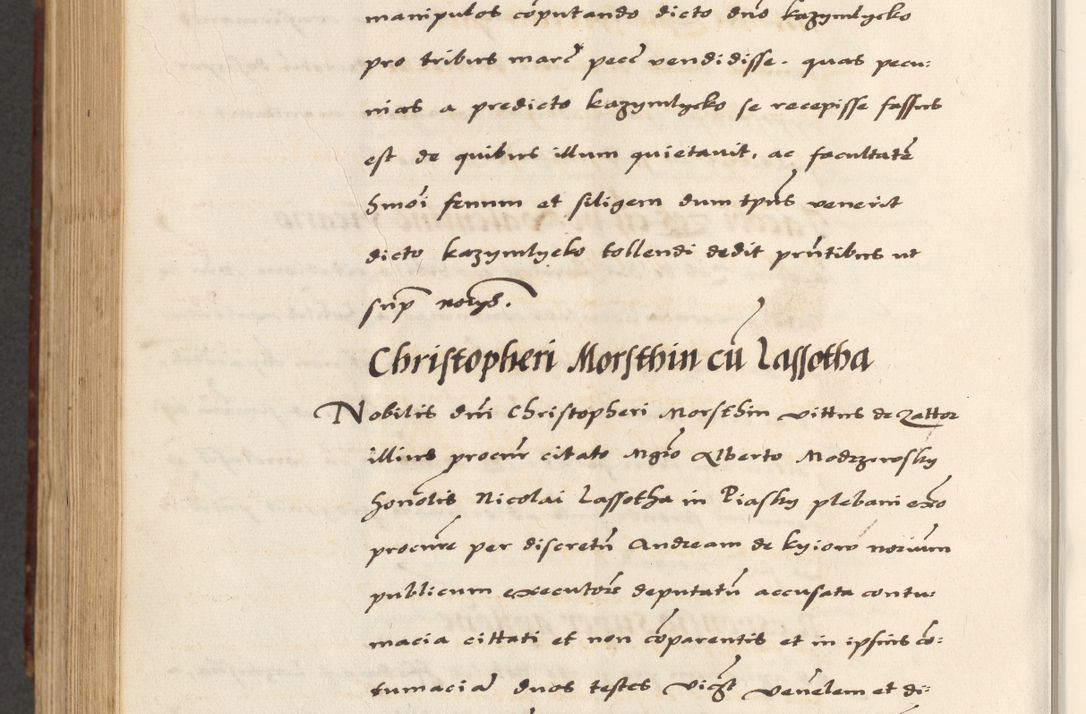 manipulos cōputando dicto dn̄o kazymlycko
pro tribus marc̄ pecc̄ vendidisse. quas pecu:
nias a predicto kazymlycko se recepisse fassus
est de quibus illum quietauit, ac facultatē
hm̄oi fenum et siligem dum tp̄us venerit
dicto kazymlycko tollendi dedit pn̄tibus ut
sup̄
Christopheri Morsthin cū Lassotha
Nobilis dn̄i Christopheri Morsthin vittus de Zattor
illius procur̄ citato Mgr̄o Alberto Modrzewsky
hon̄olis Nicolai Lassotha in Piasky plebani
procur̄e per discretū Andream de kyiow
publicum executorē deputatū accusata contu:
macia cittati et non cōparentis et in ipsius cō:
tumaciā duos testes vic̄z ven̄elem et di: